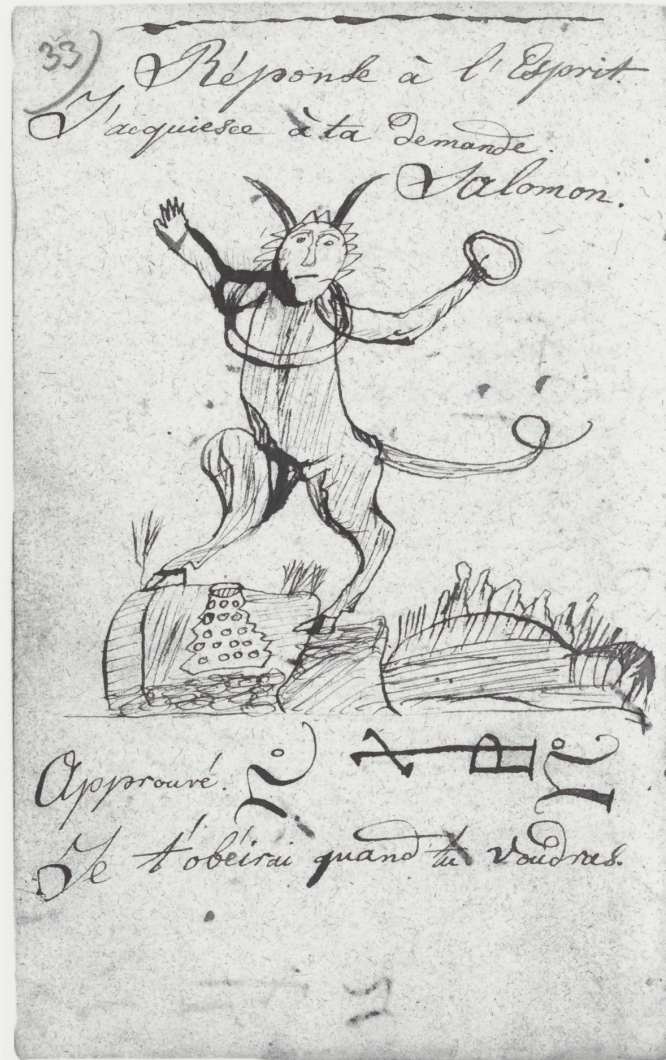 33)
Réponse à l'Esprit.
J'acquiesce à ta demande.
Salomon.
Approuvé.
Je t'obéirai quand tu voudras.